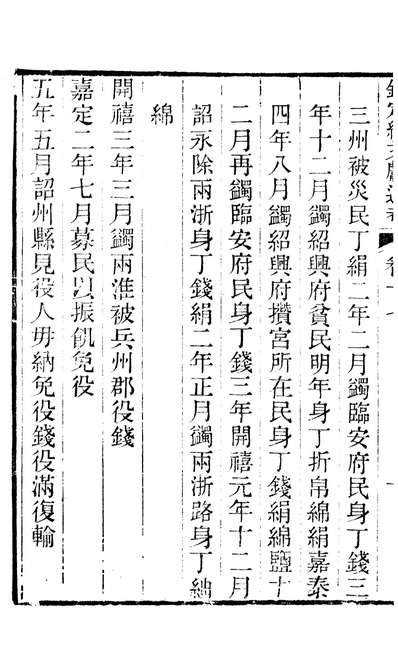 三州被災民丁絹二年二月蠲臨安府民身丁錢三
年十二月蠲紹興府貧民明年身丁折帛綿絹嘉泰
四年八月蠲紹興府攢宮所在民身丁錢絹綿鹽十
二月再蠲臨安府民身丁錢三年開禧元年十二月
詔永除兩浙身丁錢絹二年正月蠲兩浙路身丁紬
綿
開禧三年三月蠲兩淮被兵州郡役錢
嘉定二年七月募民以振飢免役
五年五月詔州縣見役人毋納免役錢役滿復輸